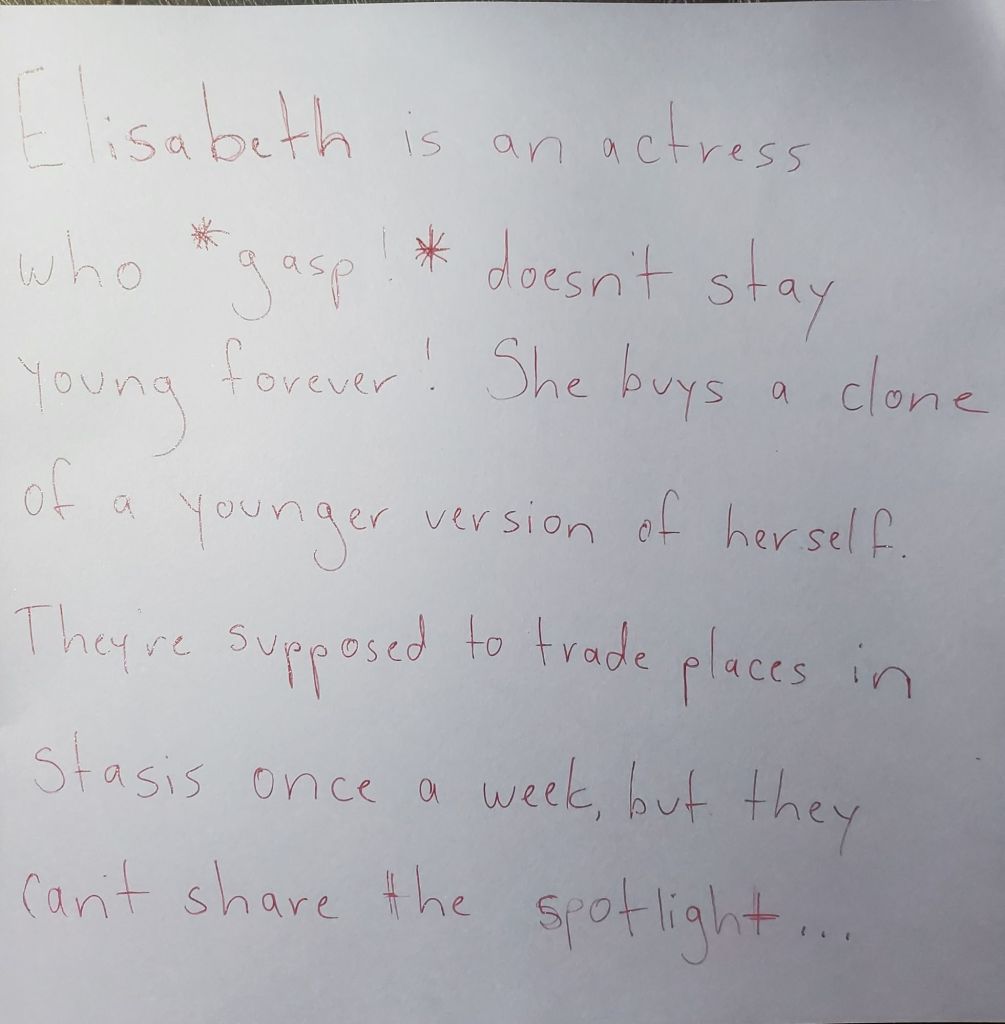 Elisabeth is an actress
who *gasp!* doesn't stay
young forever! She buys a clone
of a younger version of herself.
They're supposed to trade places in
Stasis once a week, but they
can't share the spotlight...